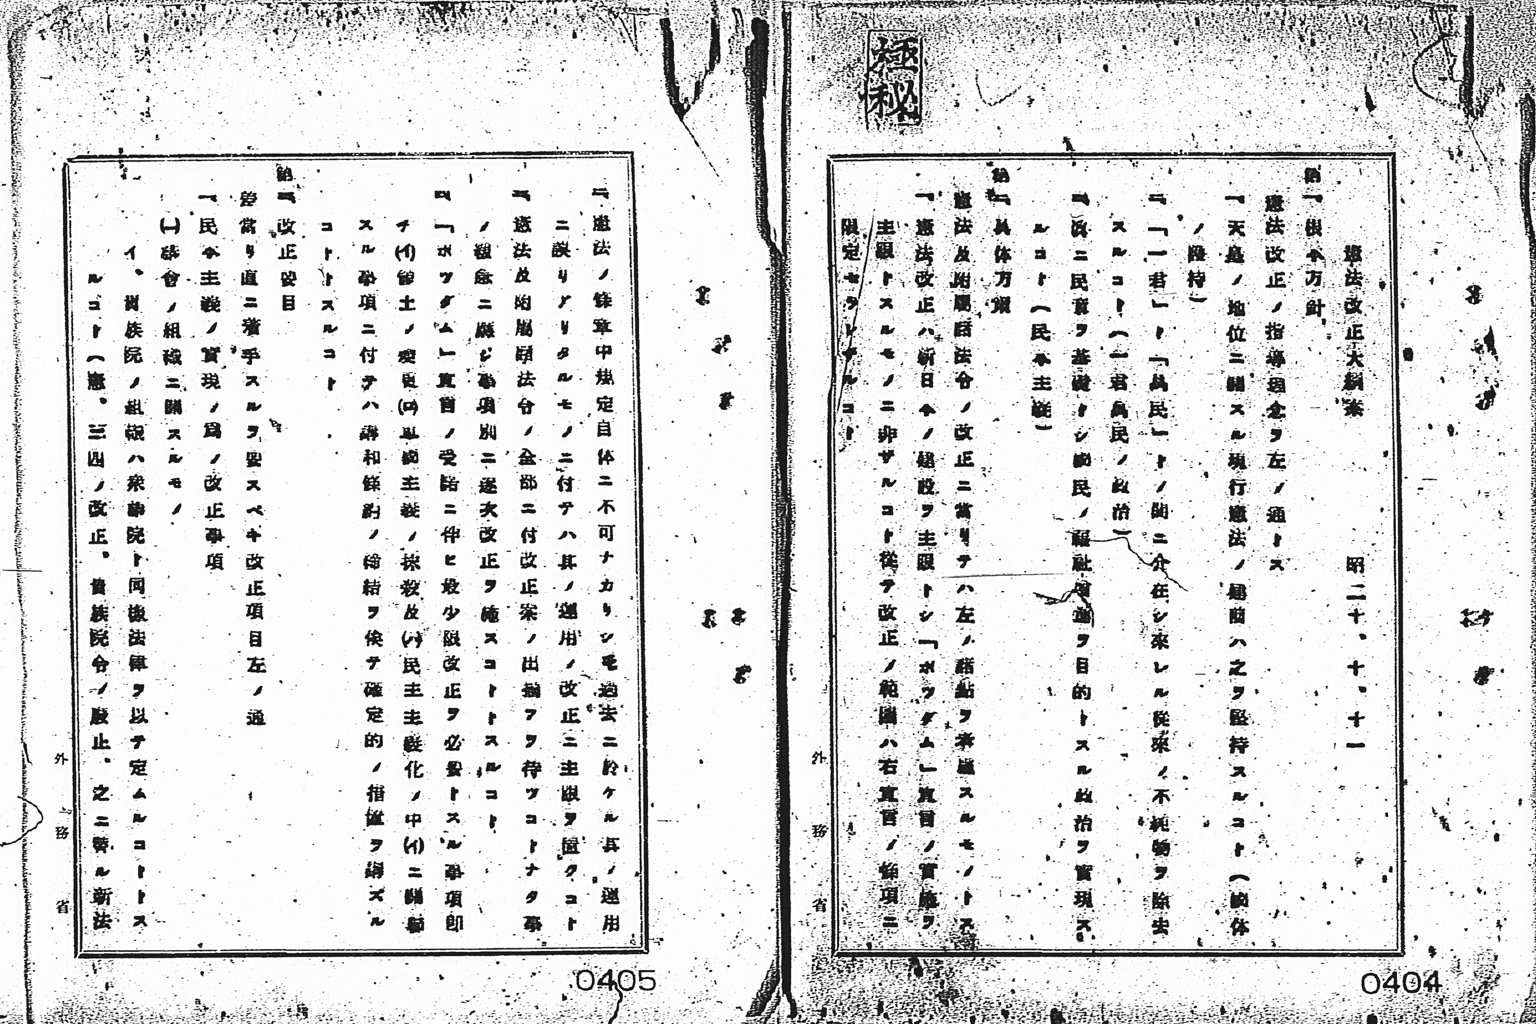 極秘
憲法改正大綱案
昭二十、十、十一
第一、根本方針
憲法改正ノ指導理念ヲ左ノ通トス
一、天皇ノ地位ニ關スル現行憲法ノ建前ハ之ヲ堅持スルコト（國体
ノ護持）
二、「一君」ト「萬民」トノ間ニ介在シ來レル從來ノ不純物ヲ除去
スルコト（一君萬民ノ政治）
三、民意ヲ基礎トシ國民ノ福祉增進ヲ目的トスル政治ヲ實現ス
ルコト（民本主義）
第二、具体方策
憲法及附屬諸法令ノ改正ニ當リテハ左ノ諸點ヲ考慮スルモノトス
一、憲法改正ハ新日本ノ建設ヲ主眼トシ「ポツダム」宣言ノ實施ヲ
主眼トスルモノニ非ザルコト從テ改正ノ範圍ハ右宣言ノ條項ニ
限定セラレザルコト
外務省
0404
二、憲法ノ條章中規定自体ニ不可ナカリシモ過去ニ於ケル其ノ運用
ニ誤リアリタルモノニ付テハ其ノ運用ノ改正ニ主眼ヲ置クコト
三、憲法及附屬諸法令ノ全部ニ付改正案ノ出揃フヲ待ツコトナク事
ノ緩急ニ應ジ事項別ニ逐次改正ヲ施スコトトスルコト
四、「ポツダム」宣言ノ受諾ニ伴ヒ最少限改正ヲ必要トスル事項卽
チ(イ)領土ノ變更(ロ)軍國主義ノ抹殺及(ハ)民主主義化ノ中(イ)ニ關聯
スル事項ニ付テハ講和條約ノ締結ヲ俟テ確定的ノ措置ヲ講ズル
コトトスルコト
第三、改正要目
差當リ直ニ着手スルヲ要スベキ改正項目左ノ通
一、民本主義ノ實現ノ爲ノ改正事項
(一)議會ノ組織ニ關スルモノ
イ、貴族院ノ組織ハ衆議院ト同樣法律ヲ以テ定ムルコトトス
ルコト（憲、三四ノ改正、貴族院令ノ廢止、之ニ替ル新法
外務省
0405